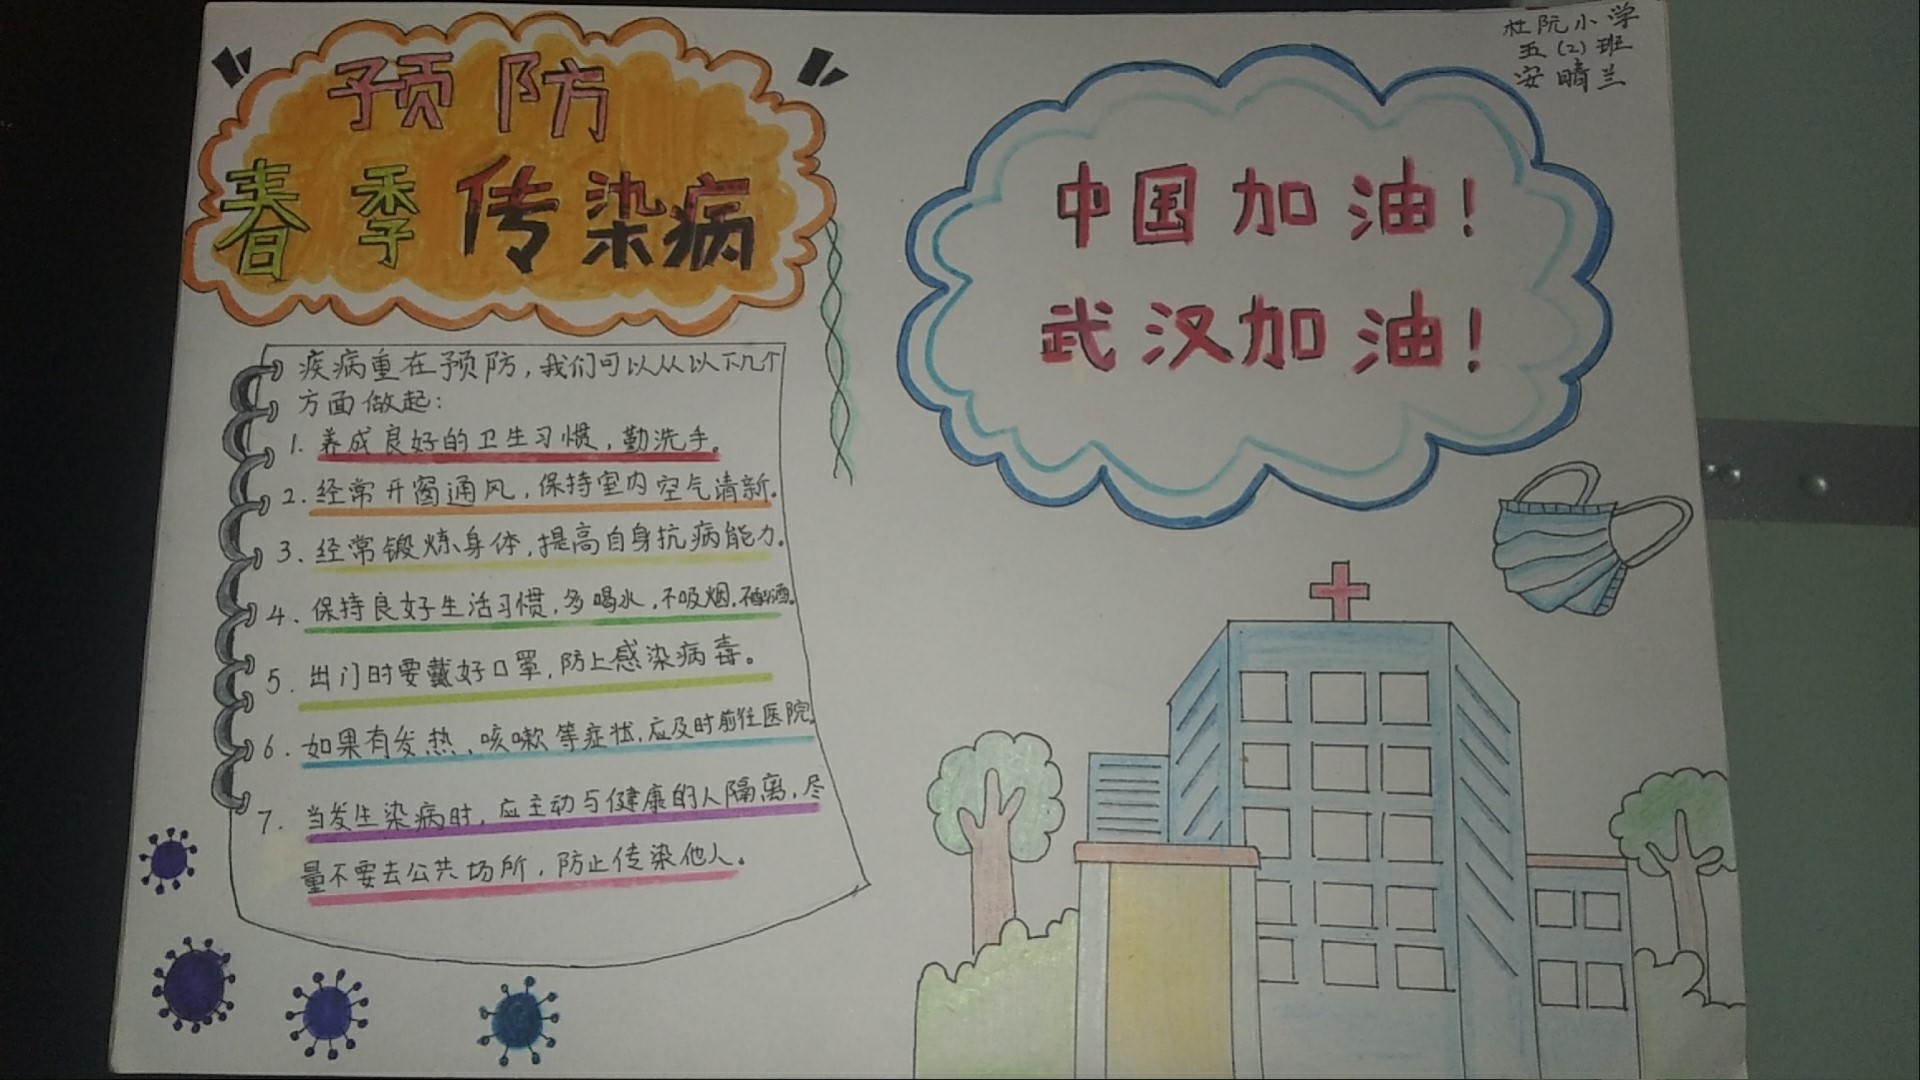 预防
春季传染病
疾病重在预防，我们可以从以下几个
方面做起：
1. 养成良好的卫生习惯，勤洗手。
2. 经常开窗通风，保持室内空气清新。
3. 经常锻炼身体，提高自身抗病能力。
4. 保持良好生活习惯，多喝水，不吸烟，不酗酒。
5. 出门时要戴好口罩，防上感染病毒。
6. 如果有发热、咳嗽等症状，应及时前往医院。
7. 当发生染病时，应主动与健康的人隔离，尽
量不要去公共场所，防止传染他人。
中国加油！
武汉加油！
杜阮小学
五(2)班
安晴兰